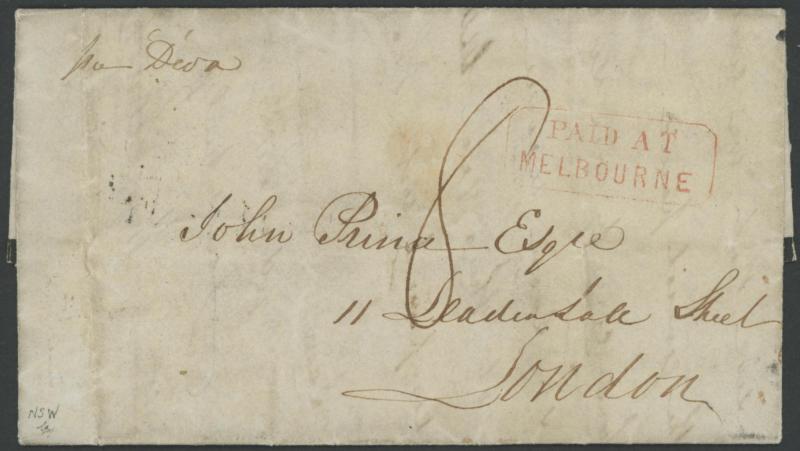 per Diva
PAID AT
MELBOURNE
8
John Prince Esqre
11 Leadenhall Street
London
NSW